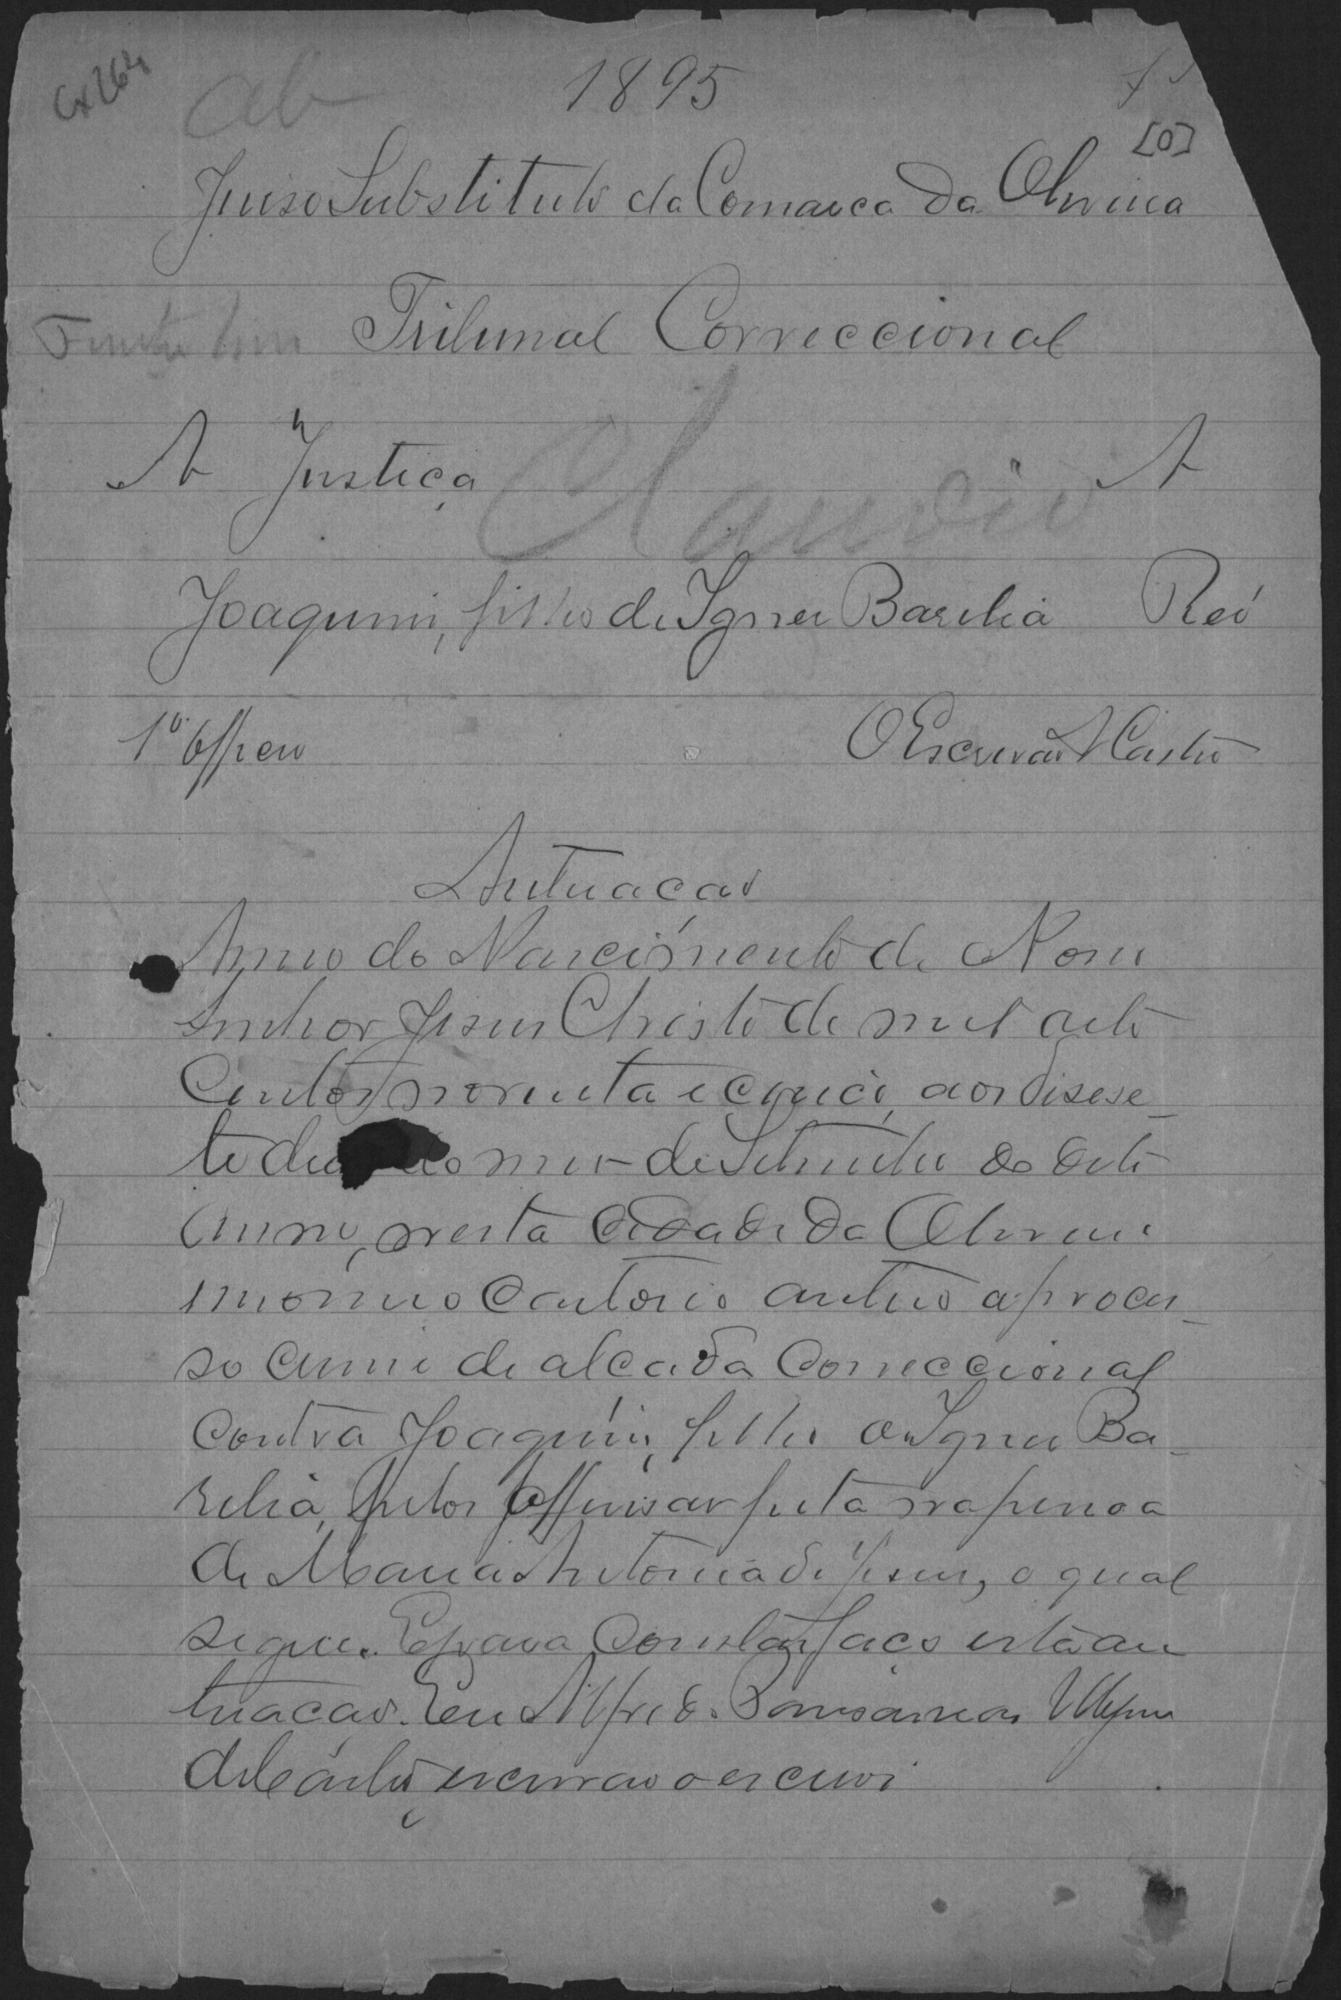 Cx 264
ab
1895
[0]
Juiso Substituto da Comarca da Oliveira
Tribunal Correccional
A Justiça A
Claudio
Joaquim, filho de Ignez Bazilia Reó
1º Officio O Escrivão A Castro
Autuacao
Anno do Nascimento de Nosso
Senhor Jesus Christo de mil oito
Centos noventa e cinco, aos disese-
te dias do mes de Setembro do dito
anno, nesta cidade da Oliveira
em meo Cartorio autuo o proces-
so crime de alcada Correccional
contra Joaquim, filho de Ignez Ba-
zilia, pelos offensas feita na pessoa
de Maria Antonia de Jesus, o qual
segue. E para constar faco esta au
tuacao. Eu Alfredo
de Castro, escrivao o escrevi